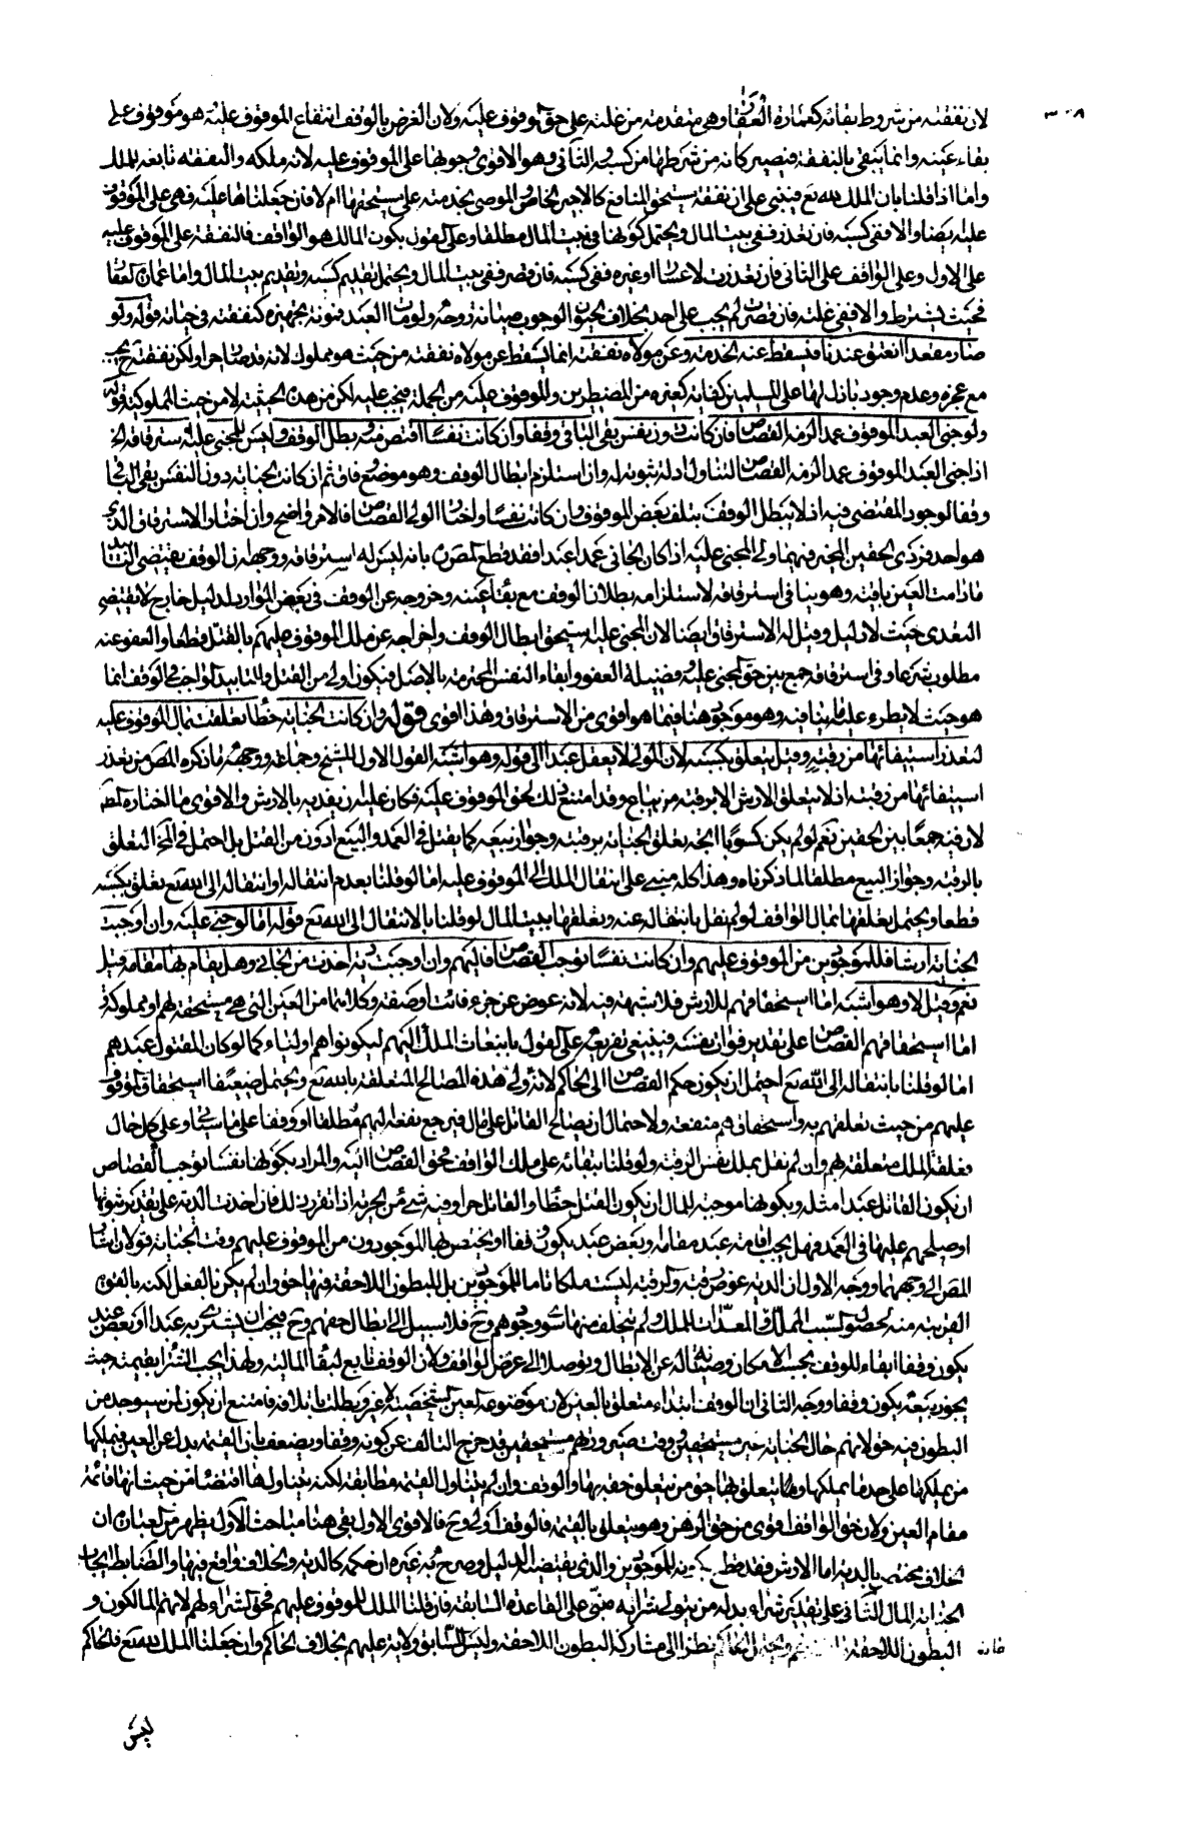 ٣٠٨
لان نفقته من شروط بقائه كعمارة العقار وهي متقدمة من غلته على حق الموقوف عليه ولان الغرض بالوقف انتفاع الموقوف عليه هو موقوف على
بقاء عينه وانما يبقى بالنفقة فيصير كانه من شرطها من كسبه والثاني وهو الاقوى وجوبها على الموقوف عليه لانه ملكه والنفقة تابعة للملك
واما اذا قلنا بان الملك لله تع فينبني على ان نفقة مستحق المنافع كالاجير الخاص والموصى بخدمته على مستحقها ام لا فان جعلناها عليه فهي على الموقوف
عليه ايضا والا ففي كسبه فان تعذر ففي بيت المال ويحتمل كونها في بيت المال مطلقا وعلى القول بكون المالك هو الواقف فالنفقة على الموقوف عليه
على الاول وعلى الواقف على الثاني فان تعذرت لاعسار او غيره ففي كسبه فان قصر ففي بيت المال ويحتمل تقديم كسبه وتقديم بيت المال واما عمارة العقار
فحيث يشترط والا ففي غلته فان قصرت لم يجب على احد بخلاف الحيوان لوجوب صيانة روحه ولو مات العبد فمونة تجهيزه كنفقته في حياته قوله ولو
صار مقعدا انعتق عندنا فتسقط عنه الخدمة وعن مولاه نفقته انما تسقط عن مولاه نفقته من حيث هو مملوك لانه قد صار حرا ولكن نفقته تجب
مع عجزه وعدم وجود باذل لها على المسلمين كفاية كغيره من المضطرين والموقوف عليه من الجملة فيجب عليه لكن من هذه الحيثية لا من حيث المملوكية قوله
ولو جنى العبد الموقوف عمدا لزمه القصاص فان كانت دون النفس بقي الباقي وقفا وان كانت نفسا اقتص منه وبطل الوقف وليس للمجني عليه استرقاقه الخ
اذا جنى العبد الموقوف عمدا لزمه القصاص لتناول ادلة ثبوته له وان استلزم ابطال الوقف وهو موضع وفاق ثم ان كانت الجناية دون النفس بقي الباقي
وقفا لوجود المقتضي فيه اذ لا يبطل الوقف بتلف بعض الموقوف وان كانت نفسا واختار الولي القصاص فالامر واضح وان اختار الاسترقاق الذي
هو احد فردي الحقين المخير فيهما ولي المجني عليه اذا كان الجاني عمدا عبدا فقد قطع المص بانه ليس له استرقاقه ووجهه ان الوقف يقتضي التابيد
مادامت العين باقية وهو ينافي استرقاقه لاستلزامه بطلان الوقف مع بقاء عينه وخروجه عن الوقف في بعض الموارد لدليل خارج لا يقتضي
التعدي حيث لا دليل وقيل له الاسترقاق ايضا لان المجني عليه استحق ابطال الوقف واخراجه عن ملك الموقوف عليهم بالقتل قطعا والعفو عنه
مطلوب شرعا وفي استرقاقه جمع بين حق المجني عليه وفضيلة العفو وابقاء النفس المحترمة بالاصل فيكون اولى من القتل والتابيد الواجب في الوقف انما
هو حيث لا يطرء عليه ما ينافيه وهو موجود هنا فيما هو اقوى من الاسترقاق وهذا اقوى قوله وان كانت الجناية خطأ تعلقت بمال الموقوف عليه
لتعذر استيفائها من رقبته وقيل يتعلق بكسبه لان المولى لا يعقل عبدا الى قوله وهو اشبه القول الاول للشيخ وجماعة ووجهه ما ذكره المص من تعذر
استيفائها من رقبته اذ لا يتعلق الارش الا برقبة من يباع وقد امتنع ذلك لحق الموقوف عليه فكان عليه ان يفديه بالارش والاقوى ما اختاره المص
لان فيه جمعا بين الحقين نعم لو لم يكن كسوبا اتجه تعلق الجناية برقبته وجواز بيعه كما يقتل في العمد والبيع ادون من القتل بل احتمل في لف التعلق
بالرقبة وجواز البيع مطلقا لما ذكرناه وهذا كله مبني على انتقال الملك الى الموقوف عليه اما لو قلنا بعدم انتقاله او انتقاله الى الله تع تعلق بكسبه
قطعا ويحتمل تعلقها بمال الواقف لو لم نقل بانتقاله عنه وتعلقها ببيت المال لو قلنا بالانتقال الى الله تع قوله اما لو جني عليه وان اوجبت
الجناية ارشا فللموجودين من الموقوف عليهم وان كانت نفسا توجب القصاص فاليهم وان اوجبت دية اخذت من الجاني وهل يقام بها مقامه قيل
نعم وقيل لا وهو اشبه اما استحقاقهم للارش فلا شبهة فيه لانه عوض عن جزء فائت او صفة وكلاهما من العين التي هي مستحقة لهم او مملوكة و
اما استحقاقهم القصاص على تقدير فوات نفسه فينبغي تفريعه على القول بانتقال الملك اليهم ليكونوا هم اولياءه كما لو كان المقتول عبدهم
اما لو قلنا بانتقاله الى الله تع احتمل ان يكون حكم القصاص الى الحاكم لانه ولي هذه المصالح المتعلقة بالله تع ويحتمل ضعيفا استحقاق الموقوف
عليهم من حيث تعلقهم به واستحقاقهم منفعته ولاحتمال ان يصالح القاتل على مال فيرجع نفعه اليهم مطلقا او وقفا على ما سياتي وعلى كل حال
فعلقة الملك متعلقة بهم وان لم نقل بملك نفس الرقبة ولو قلنا ببقائه على ملك الواقف فحق القصاص اليه والمراد بكونها نفسا توجب القصاص
ان يكون القاتل عبدا مثله وبكونها موجبة للمال ان يكون القتل خطأ او القاتل حرا او فيه شيء من الحرية اذا تقرر ذلك فان اخذت الدية على تقدير ثبوتها
او صلحهم عليها في العمد فهل يجب اقامة عبد مقامه او بعض عبد يكون وقفا او يختص بها الموجودون من الموقوف عليهم وقت الجناية قولان اشار
المص الى وجههما ووجه الاول ان الدية عوض رقبته والرقبة ليست ملكا تاما للموجودين بل للبطون اللاحقة فيها حق وان لم يكن بالفعل لكنه بالقوة
القريبة منه لحصول سبب الملك والمعدات للملك ولم يتخلف منها سوى وجودهم وح فلا سبيل الى ابطال حقهم وح فيجب ان يشترى به عبدا او بعض عبد
يكون وقفا ابقاء للوقف بحسب الامكان وصيانة له عن الابطال وتوصلا الى غرض الواقف ولان الوقف تابع لبقاء المالية ولهذا يجب الشراء بقيمته حيث
يجوز بيعه يكون وقفا ووجه الثاني ان الوقف ابتداء متعلق بالعين لان موضوعه العين الشخصية لا غير وبطلت باتلافه فامتنع ان يكون لمن سيوجد من
البطون فيه حق لانهم حال الجناية غير مستحقين ووقت صيرورتهم مستحقين قد خرج التالف عن كونه وقفا ويضعف بان القيمة بدل عن العين فيملكها
من يملكها على حد ما يملكها وكما يتعلق بها حق من يتعلق حقه بها والوقف وان لم يتناول القيمة مطابقة لكنه يتناولها اقتضاء من حيث انها قائمة
مقام العين ولان حق الوقف اقوى من حق الرهن وهو يتعلق بالقيمة فالوقف اولى وح فالاقوى الاول بقي هنا مباحث الاول يظهر من العبارة ان
الخلاف مختص بالدية اما الارش فقد قطع بكونه للموجودين والذي يقتضيه الدليل وصرح به غيره ان حكمه كالدية والخلاف واقع فيها والضابط ايجاب
الجناية المال الثاني على تقدير شراء بدله من يتولى شرائه مبني على القاعدة السابقة فان قلنا الملك للموقوف عليهم فحق الشراء لهم لانهم المالكون و
البطون اللاحقة نظرا الى مشاركة البطون اللاحقة وليس للسابق ولاية عليهم بخلاف الحاكم وان جعلنا الملك لله تع فالحاكم
ليس